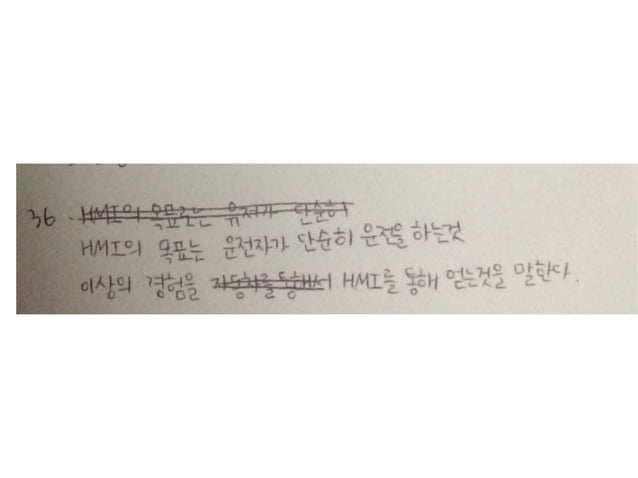 36. HMI의 목표로는 유저가 단순히
HMI의 목표는 운전자가 단순히 운전을 하는것
이상의 경험을 자동차를통해서 HMI를 통해 얻는것을 말한다.